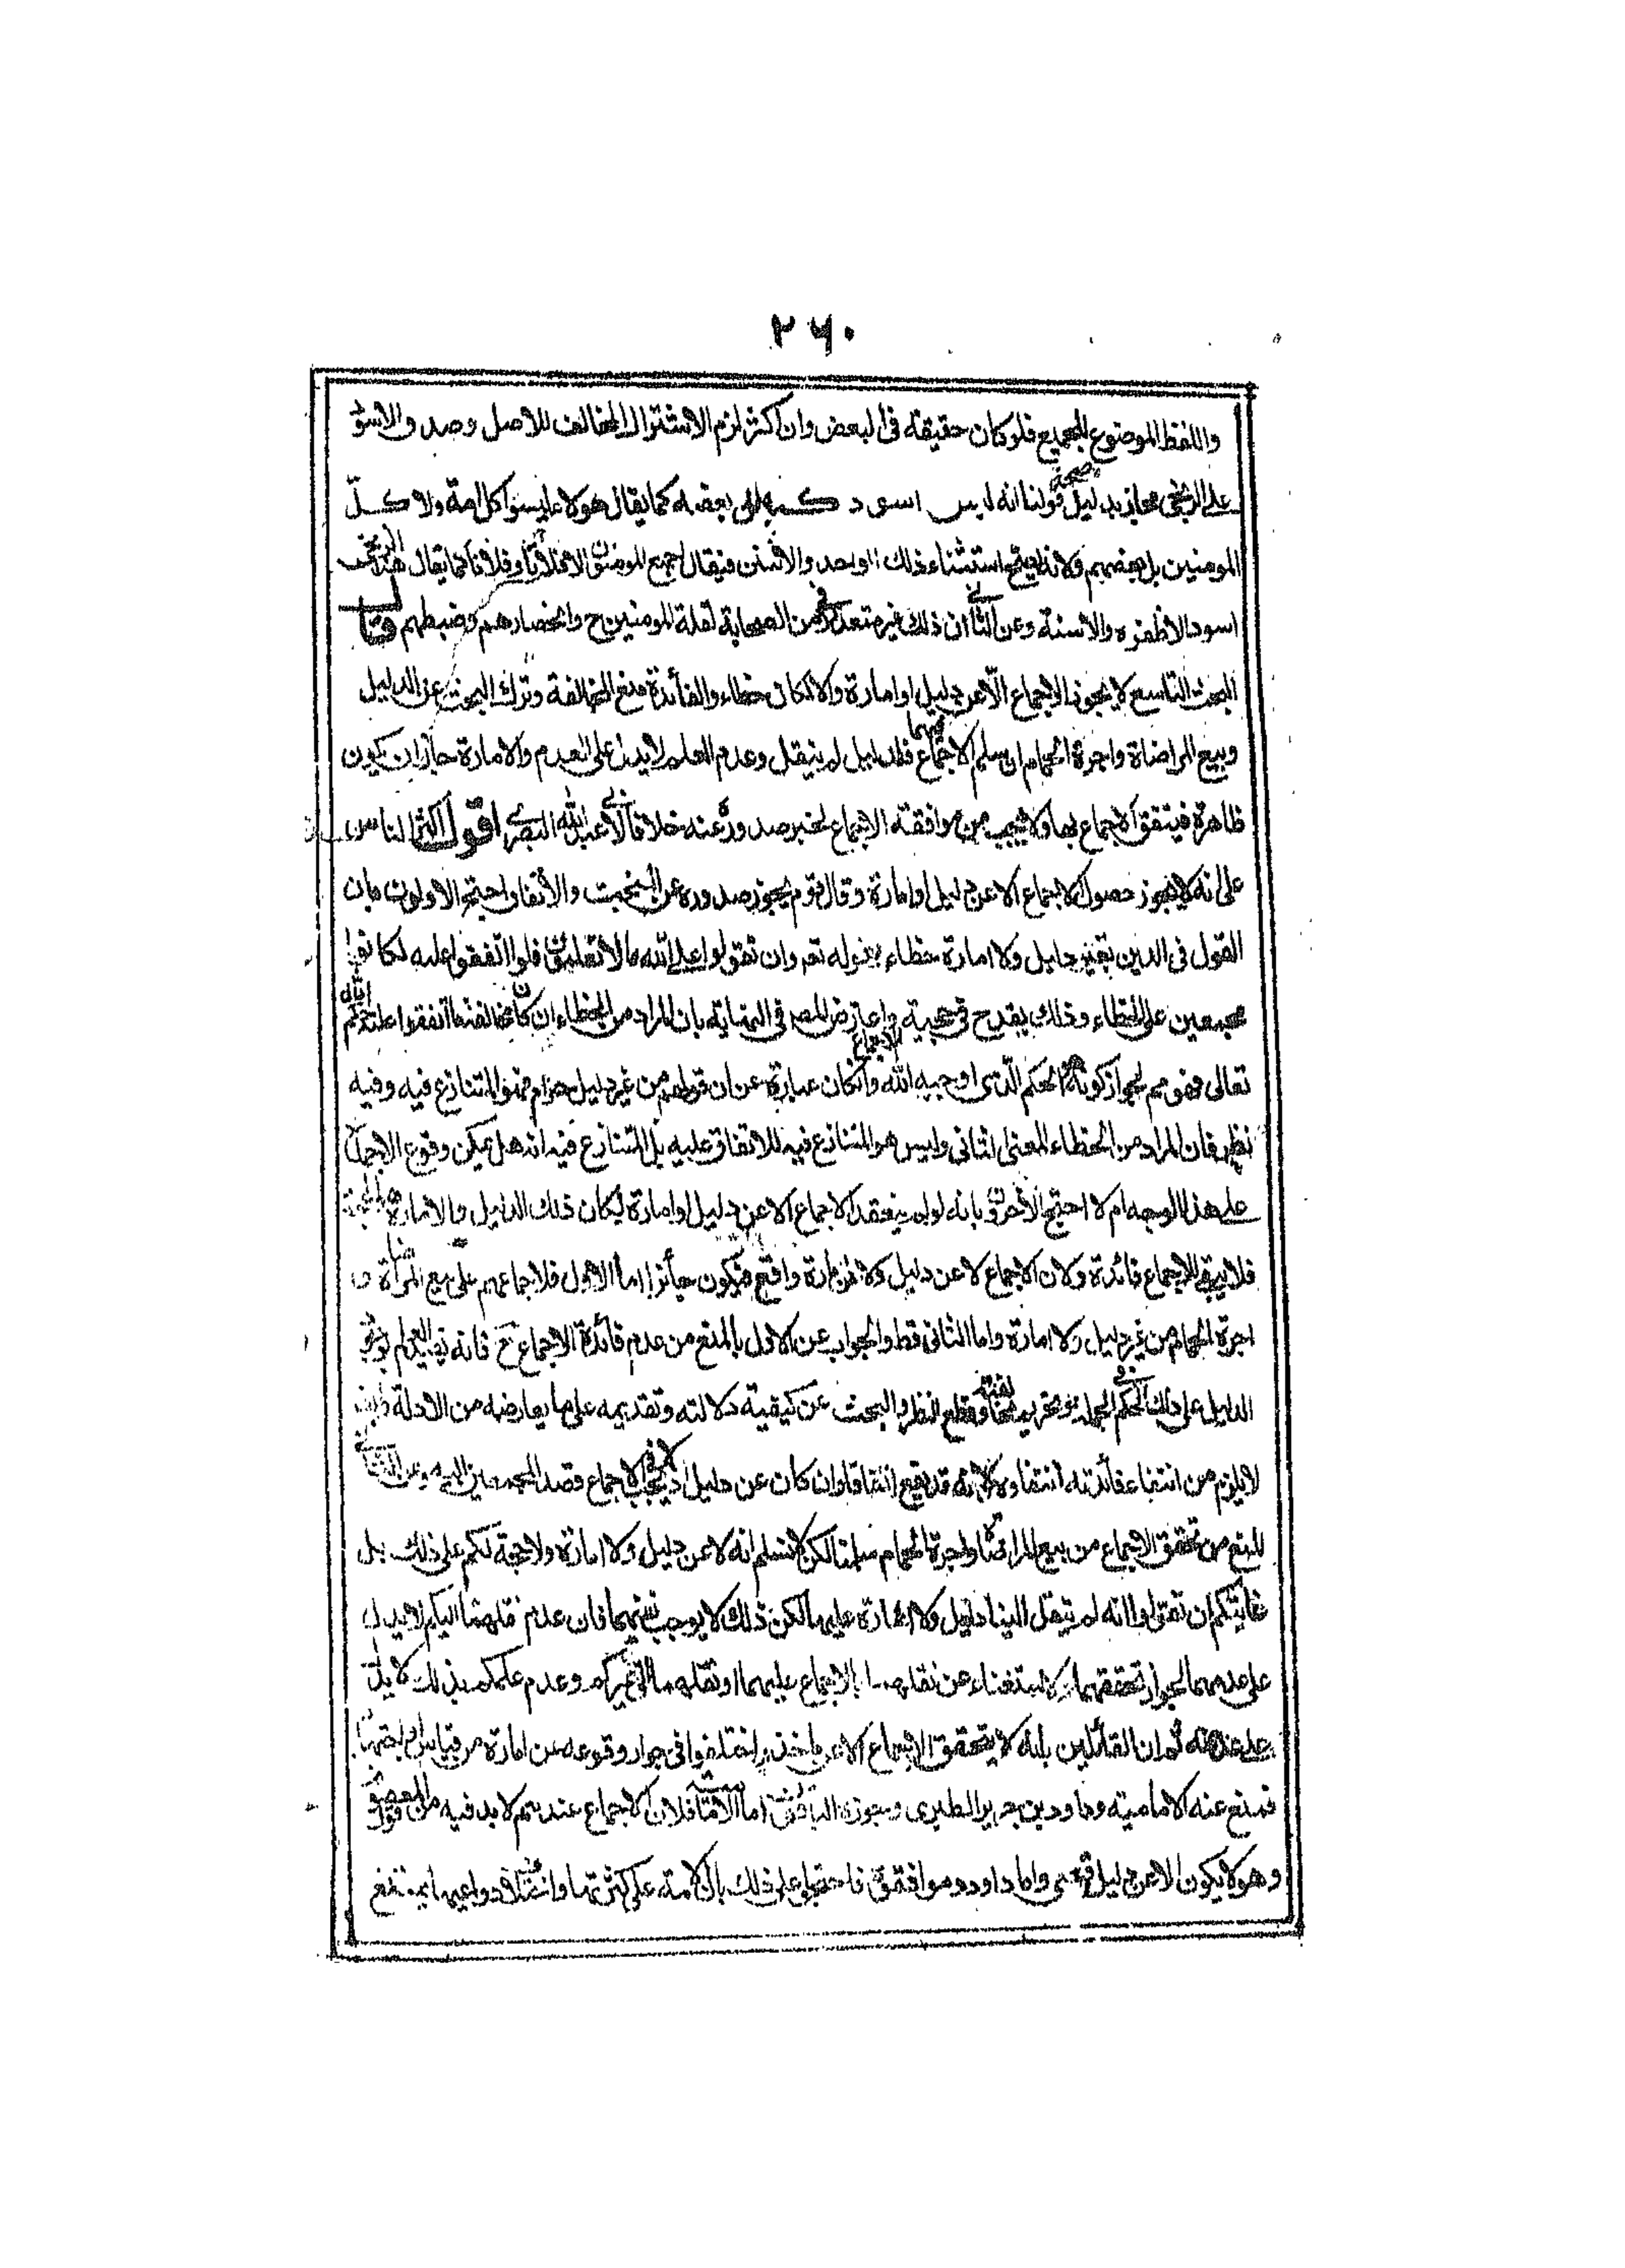 ٢٦٠
واللفظ الموضوع للجميع فلو كان حقيقة في البعض وان اكثر لزم الاشتراك المخالف للاصل وصدق الاسود
على الزنجي مجاز بدليل صحة قولنا انه ليس اسود كله بل بعضه كما يقال هولاء ليسوا كل الامة ولا كل
المومنين بل بعضهم ولانه يصح استثناء ذلك الواحد والاثنين فيقال جميع المومنين الا فلانا وفلانا كما يقال هذا الزنجي
اسود الاظفره والاسنة وعن الثاني ان ذلك غير متعذر في زمن الصحابة لقلة المومنين ح وانحصارهم وضبطهم قال
البحث التاسع لا يجوز الاجماع الا عن دليل او امارة والا لكان خطاء والفائدة منع المخالفة وترك البحث عن الدليل
وبيع المراضاة واجرة الحمام ان سلم الاجماع فيهما فالدليل لم ينقل وعدم العلم لا يدل على العدم والامارة جاز ان يكون
ظاهرة فيتفق الاجماع بها ولا يجب من موافقة الاجماع لخبر صدوره عنه خلافا لابي عبد الله البصري اقول اكثر الناس
على انه لا يجوز حصول الاجماع الا عن دليل او امارة وقال قوم يجوز صدوره عن البخت والاتفاق احتج الاولون بان
القول في الدين بغير دليل ولا امارة خطاء بقوله تعه وان تقولوا على الله ما لا تعلمون فلو اتفقوا عليه لكانوا
مجمعين على الخطاء وذلك يقدح في حجية الاجماع واعترض المصر في النهاية بان المراد من الخطاء ان كان مخالفة ما اتفقوا عليه لحكم الله
تعالى فهو مم لجواز كونه هو الحكم الذي اوجبه الله وان كان عبارة عن ان قولهم من غير دليل حرام فهو المتنازع فيه وفيه
نظر فان المراد من الخطاء المعنى الثاني وليس هو المتنازع فيه للاتفاق عليه بل المتنازع فيه انه هل يمكن وقوع الاجماع
على هذا الوجه ام لا احتج الآخرون بانه لو لم ينعقد الاجماع الا عن دليل او امارة لكان ذلك الدليل والامارة هو الحجة
فلا يبقى للاجماع فائدة ولان الاجماع لا عن دليل ولا امارة واقع فيكون جائزا اما الاول فلاجماعهم على بيع المراضاة و
اجرة الحمام من غير دليل ولا امارة واما الثاني فظ والجواب عن الاول بالمنع من عدم فائدة الاجماع ح فانه يفيد العلم بوجود
الدليل على ذلك الحكم في الجملة وتحريم مخالفته وقطع النظر والبحث عن كيفية دلالته وتقديمه على ما يعارضه من الادلة
لا يلزم من انتفاء فائدته انتفاؤه لانه قد يقع اتفاقا وان كان عن دليل اذ لا يجب في الاجماع قصد المجمعين اليه وعن الثاني
المنع من تحقق الاجماع من بيع المراضاة واجرة الحمام سلمنا لكن لا نسلم انه لا عن دليل ولا امارة ولا حجة لكم على ذلك بل
غايتكم ان تقولوا انه لم ينقل الينا دليل ولا امارة عليهما لكن ذلك لا يوجب نفيهما فان عدم نقلهما اليكم لا يدل
على عدمهما لجواز تحققهما والاستغناء عن نقلهما بالاجماع عليهما او نقلهما الى غيركم وعدم علمكم بذلك لا يدل
على عدمه ثم ان القائلين بانه لا يتحقق الاجماع الا عن ماخذ اختلفوا في جواز وقوعه عن امارة من قياس او اجتهاد
فمنع عنه الامامية وداود بن جرير الطبري وجوزه الباقون اما الامامية فلان الاجماع عندهم لا بد فيه من قول المعصوم
وهو لا يكون الا عن دليل قطعي واما داود وموافقوه فاحتجوا على ذلك بان الامة على كثرتها واختلاف دواعيها يمتنع